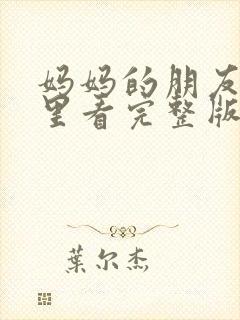 妈妈的朋友
里看完整版
葉尔杰